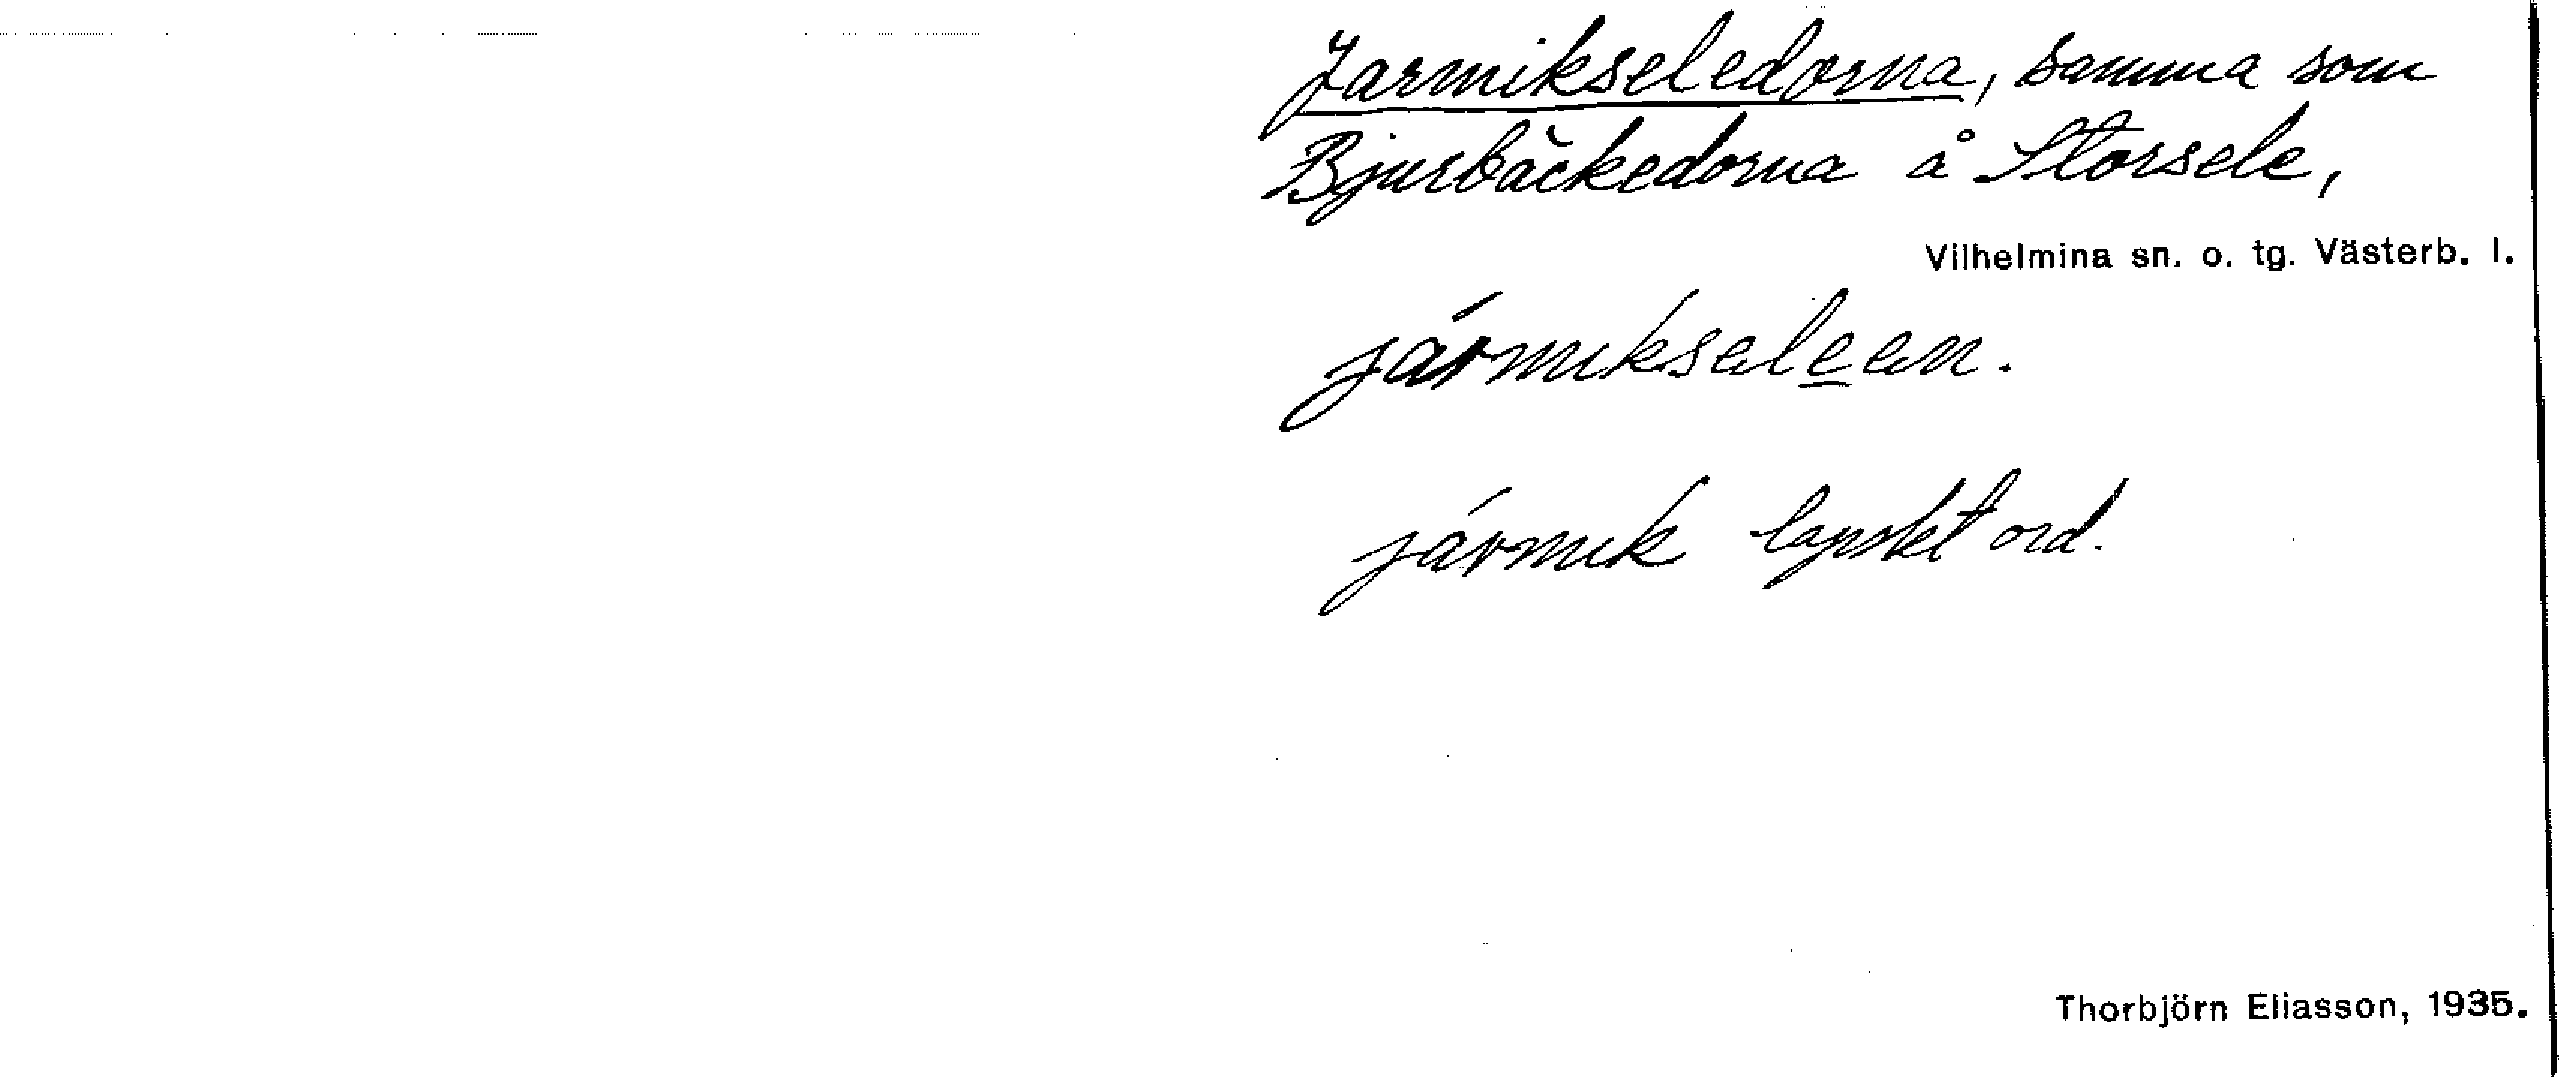 Jarmikseledorna, samma som
Bjurbäckedorna å Storsele,
Vilhelmina sn. o. tg. Västerb. l.
jármikseleen.
jármik lapskt ord.
Thorbjörn Eliasson, 1935.